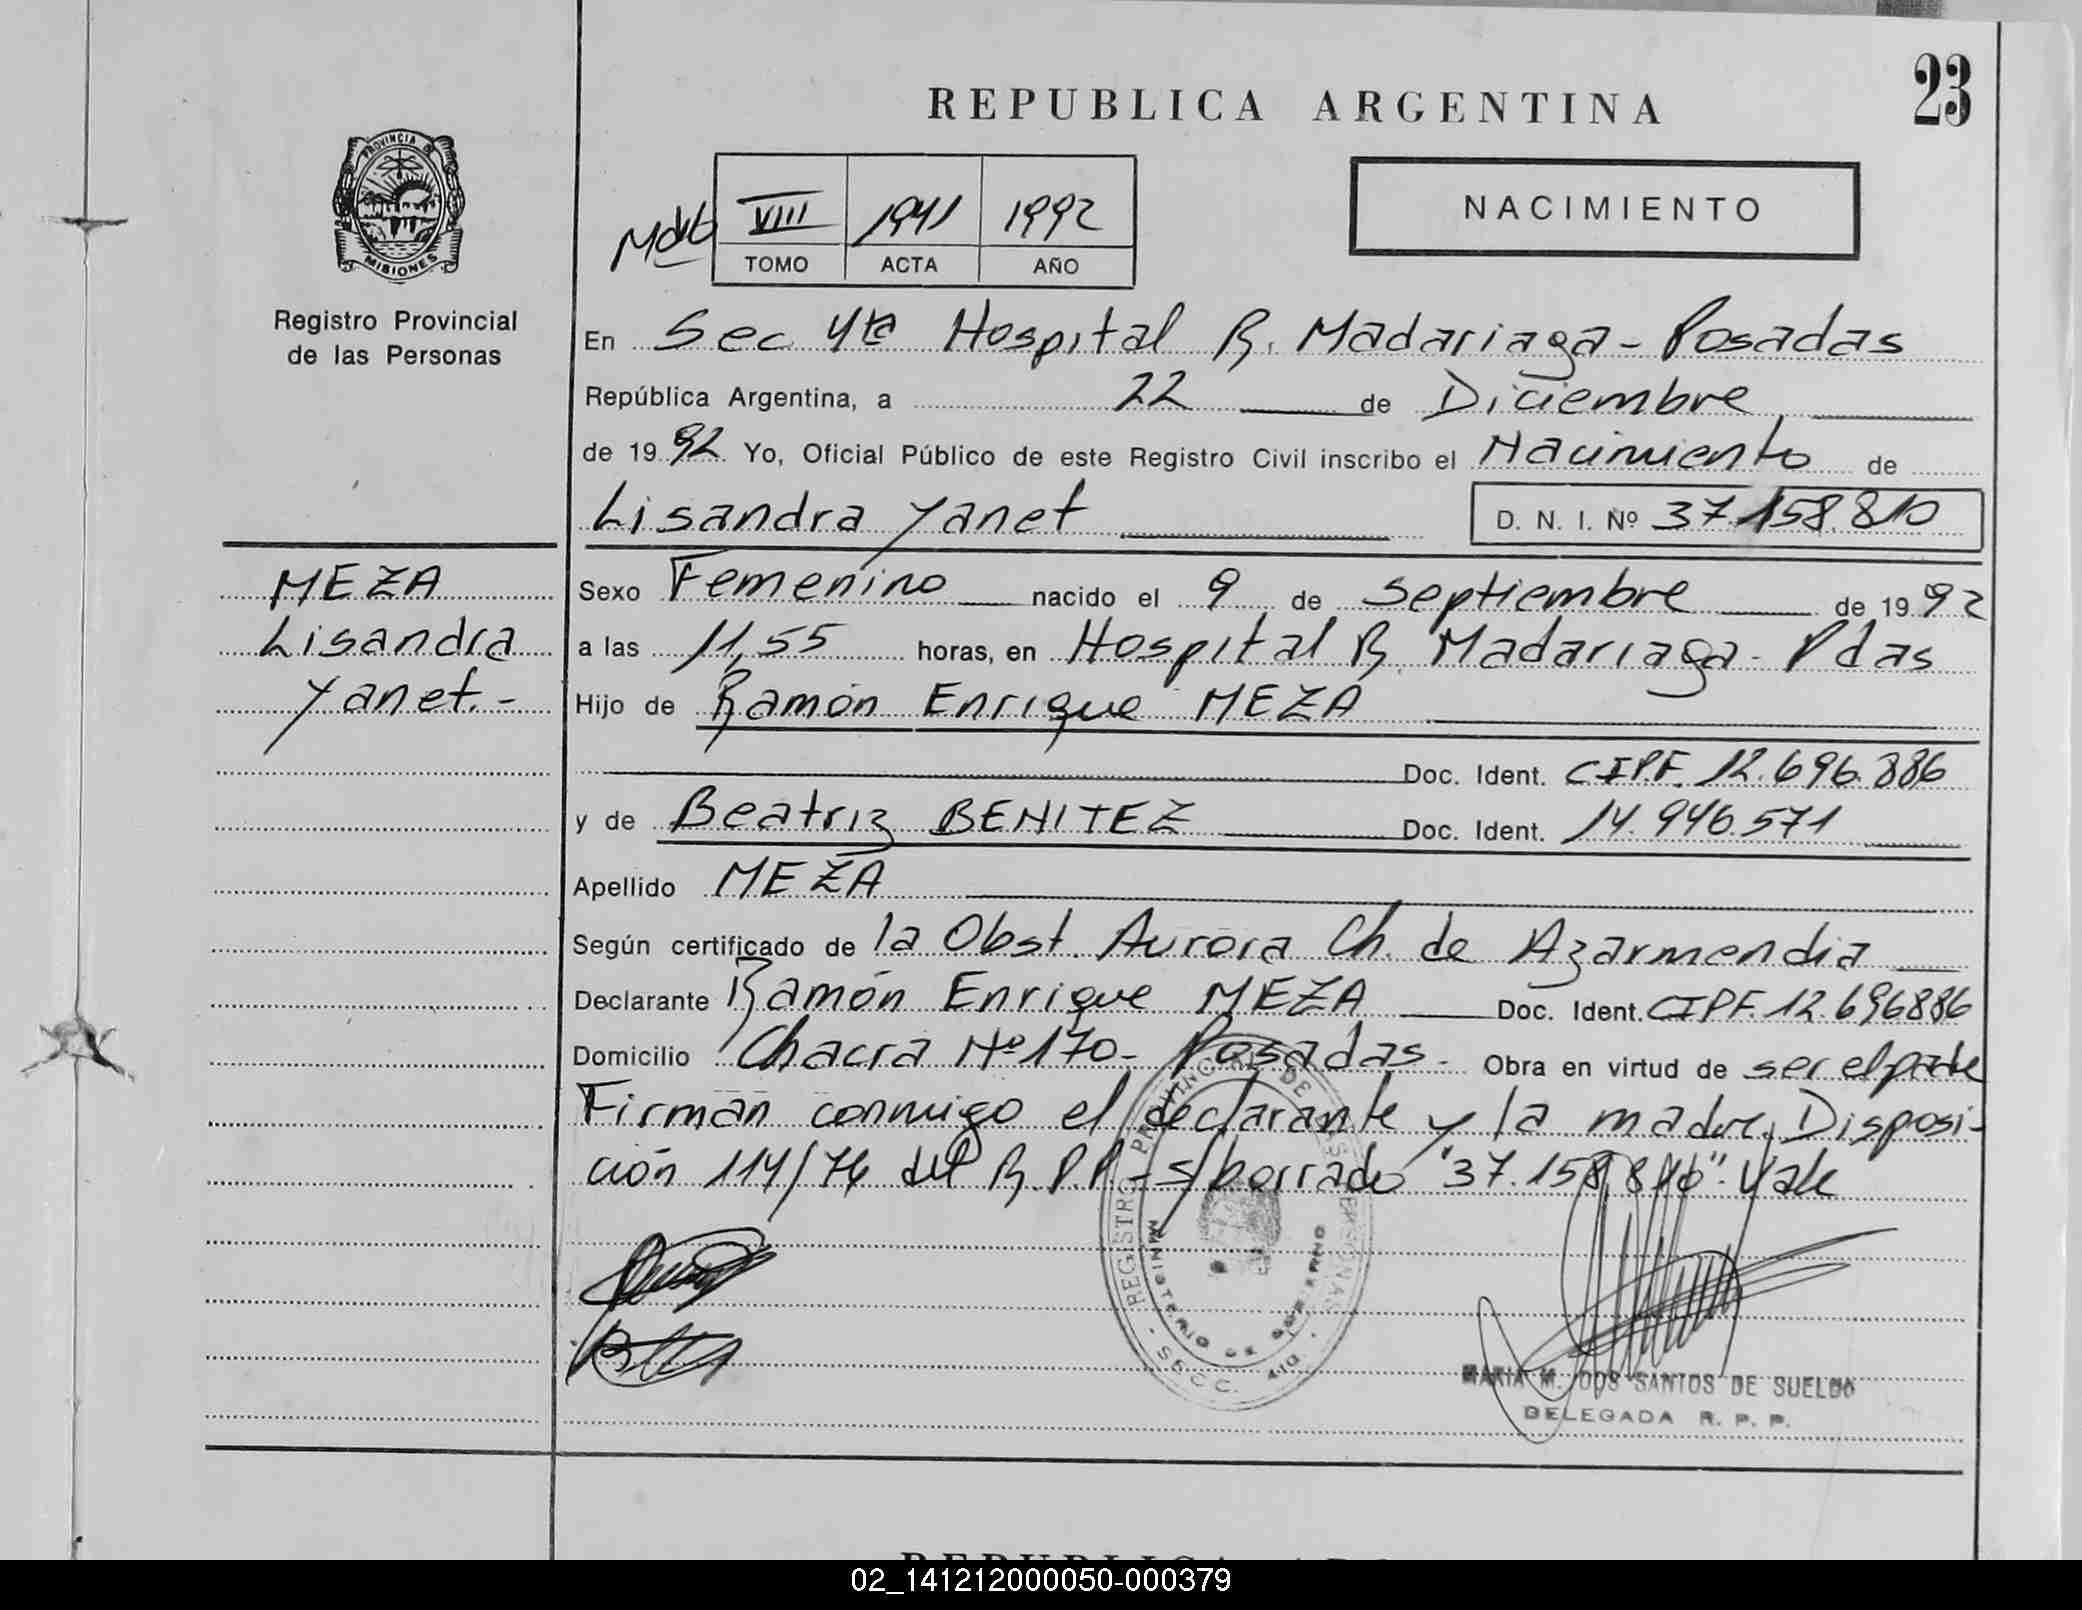 23
REPUBLICA ARGENTINA
NACIMIENTO
PROVINCIA DE
MISIONES
Registro Provincial
de las Personas
VIII 1941 1992
TOMO ACTA AÑO
En Sec 4ta Hospital R. Madariaga - Posadas
República Argentina, a 22 de Diciembre
de 1992 Yo, Oficial Público de este Registro Civil inscribo el Nacimiento de
Lisandra Yanet D. N. I. Nº 37.158.810
MEZA
Lisandra
Yanet.-
Sexo Femenino nacido el 9 de septiembre de 1992
a las 11,55 horas, en Hospital R. Madariaga - Pdas
Hijo de Ramón Enrique MEZA
Doc. Ident. CIPF. 12.696.886
y de Beatriz BENITEZ Doc. Ident. 14.946.571
Apellido MEZA
Según certificado de la Obst. Aurora Ch. de Azarmendia
Declarante Ramón Enrique MEZA Doc. Ident. CIPF. 12.696886
Domicilio Chacra Nº 170- Posadas- Obra en virtud de ser el padre
Firman conmigo el declarante y la madre. Disposi-
ción 114/76 del R.P.P.- s/borrado "37.158.810". Vale
REGISTRO PROVINCIAL DE LAS PERSONAS
MINISTERIO DE GOBIERNO
MARIA M. DOS SANTOS DE SUELDO
DELEGADA R. P. P.
02_141212000050-000379